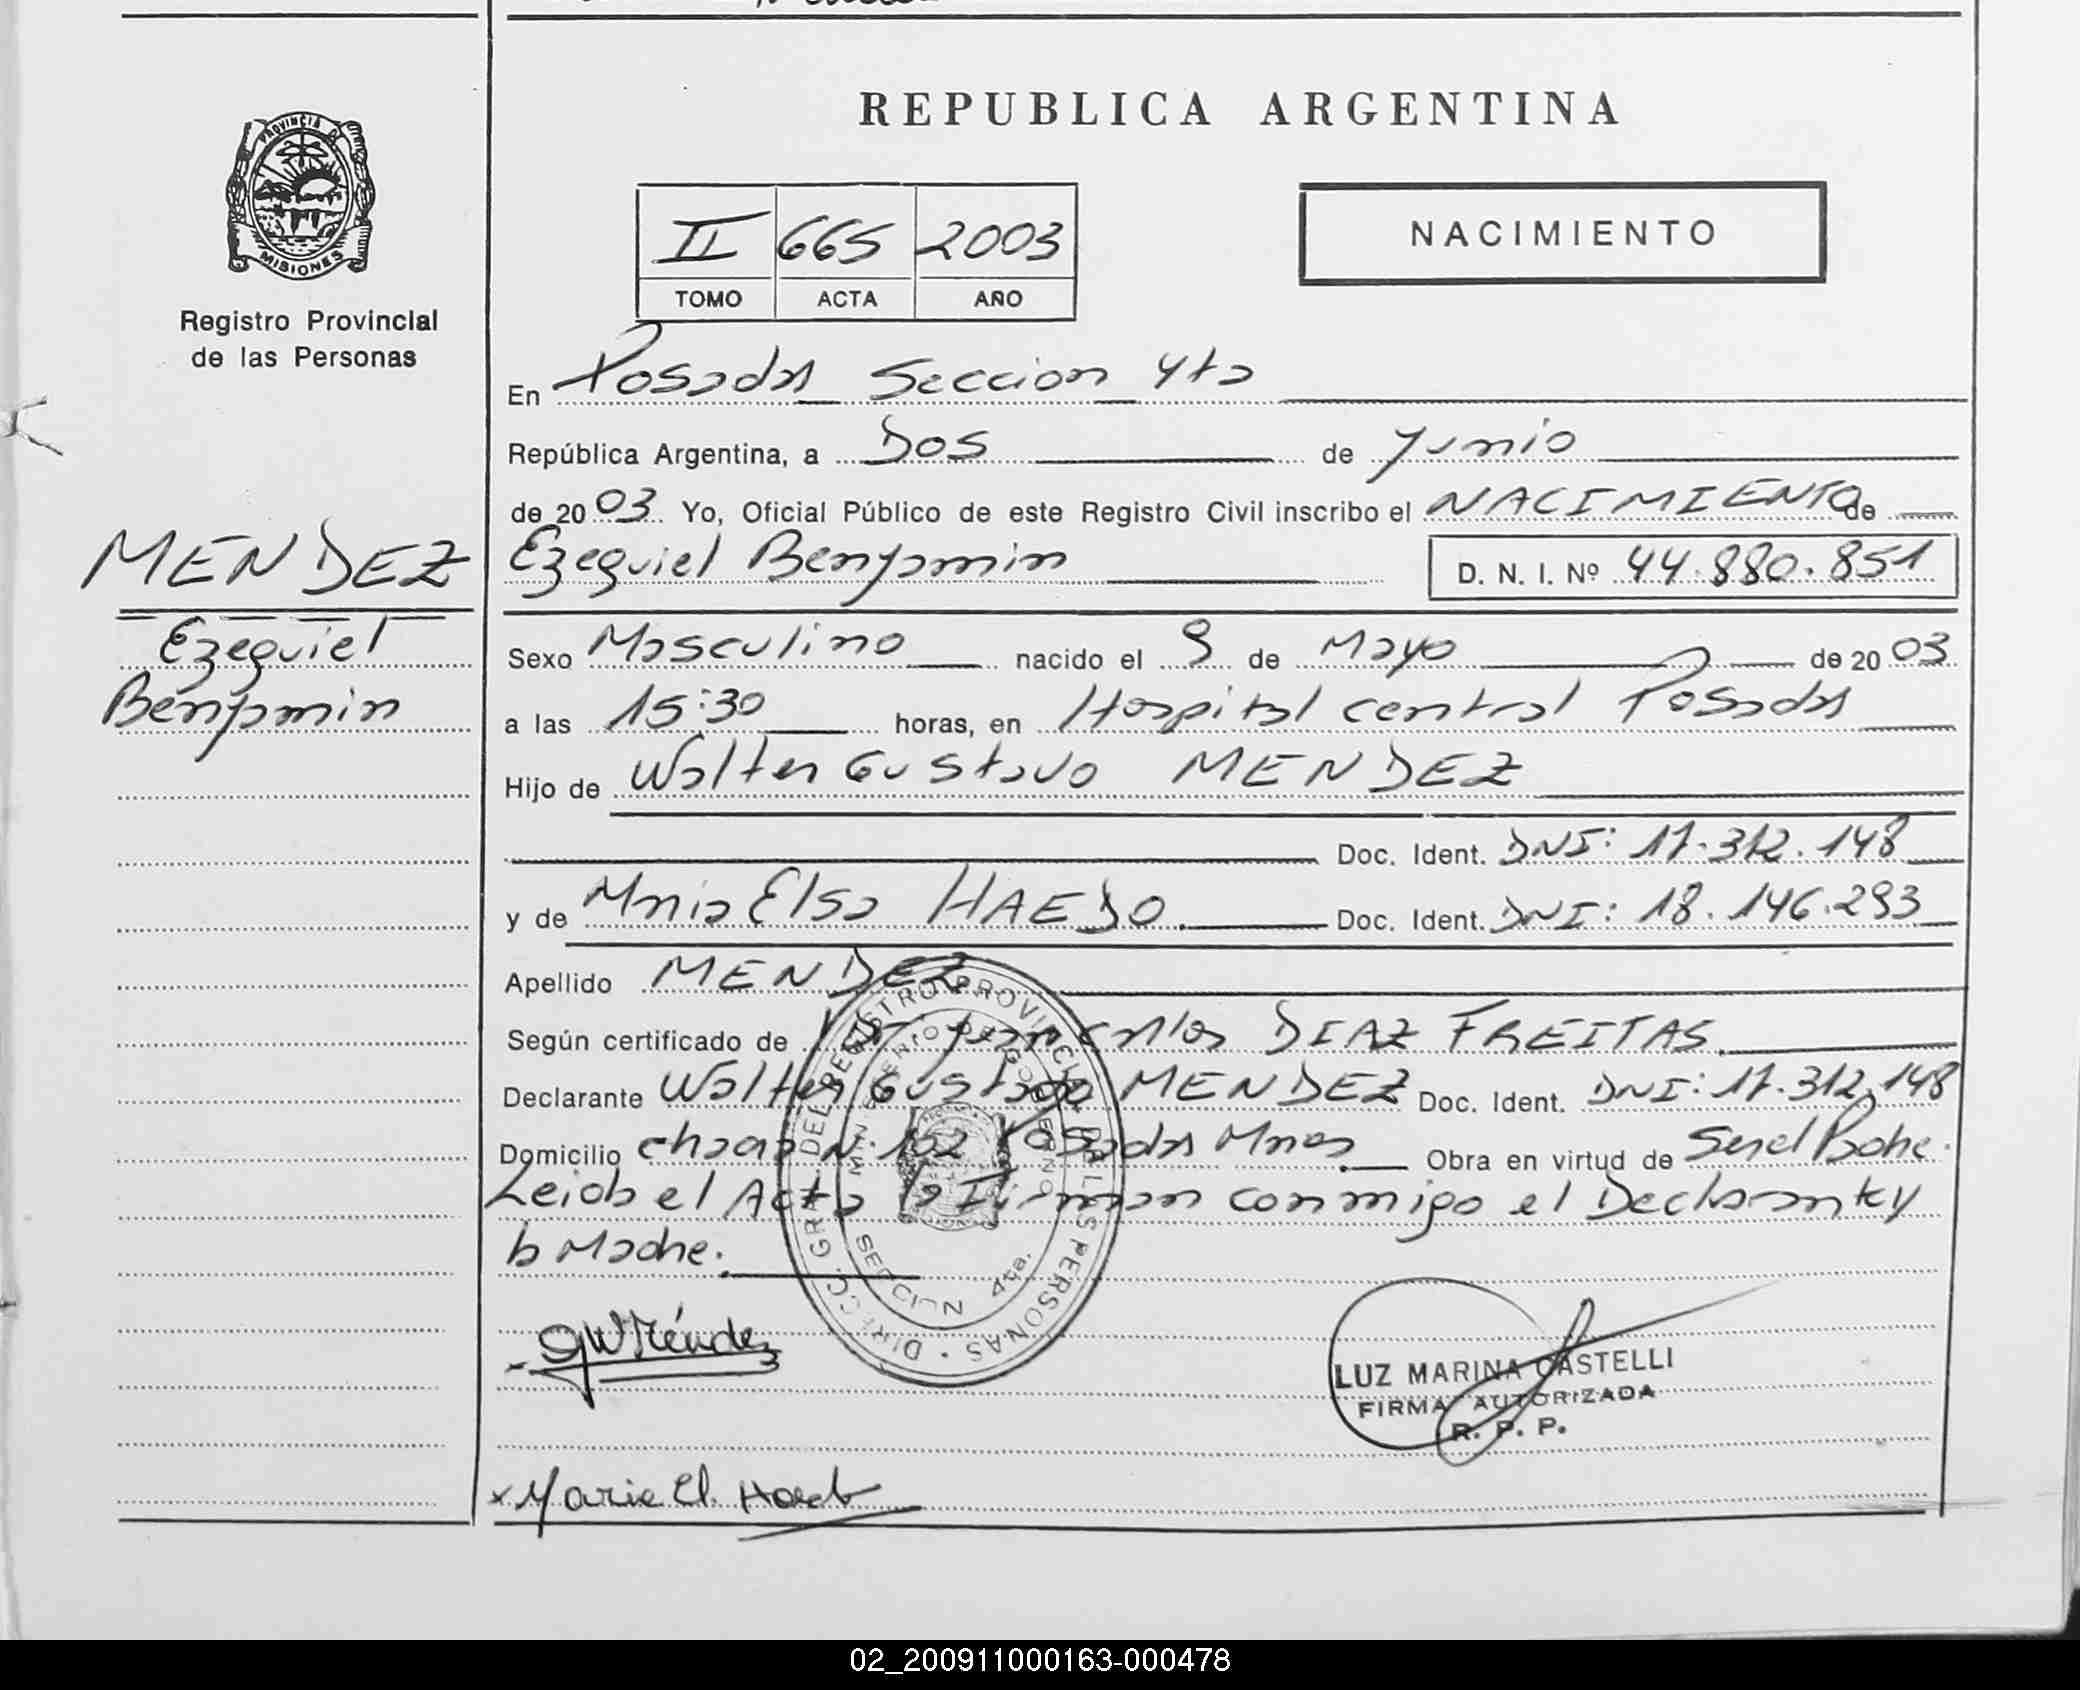 REPUBLICA ARGENTINA
PROVINCIA DE
MISIONES
Registro Provincial
de las Personas
II 665 2003
TOMO ACTA AÑO
NACIMIENTO
En Posadas Seccion 4ta
República Argentina, a Dos de Junio
de 2003 Yo, Oficial Público de este Registro Civil inscribo el NACIMIENTO de
MENDEZ
Ezequiel
Benjamin
Ezequiel Benjamin D. N. I. Nº 44.880.851
Sexo Masculino nacido el 9 de Mayo de 2003
a las 15:30 horas, en Hospital central Posadas
Hijo de Walter Gustavo MENDEZ
Doc. Ident. DNI: 17.312.148
y de Maria Elsa HAEDO Doc. Ident. DNI: 18.146.293
Apellido MENDEZ
Según certificado de Dr Juan Carlos DIAZ FREITAS
Declarante Walter Gustavo MENDEZ Doc. Ident. DNI: 17.312.148
Domicilio chacra N. 102 Posadas Mnes. Obra en virtud de Ser el Padre.
Leida el Acta la Firman conmigo el Declarante y
la Madre.
DIRECC. GRAL. DEL REGISTRO PROVINCIAL DE LAS PERSONAS
MINISTERIO DE GOBIERNO
SECCION 4ta.
GWMéndez
LUZ MARINA CASTELLI
FIRMA AUTORIZADA
R. P. P.
x Maria El. Haedo
02_200911000163-000478